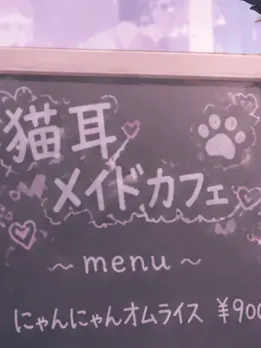 猫耳
メイドカフェ
～menu～
にゃんにゃんオムライス ¥900